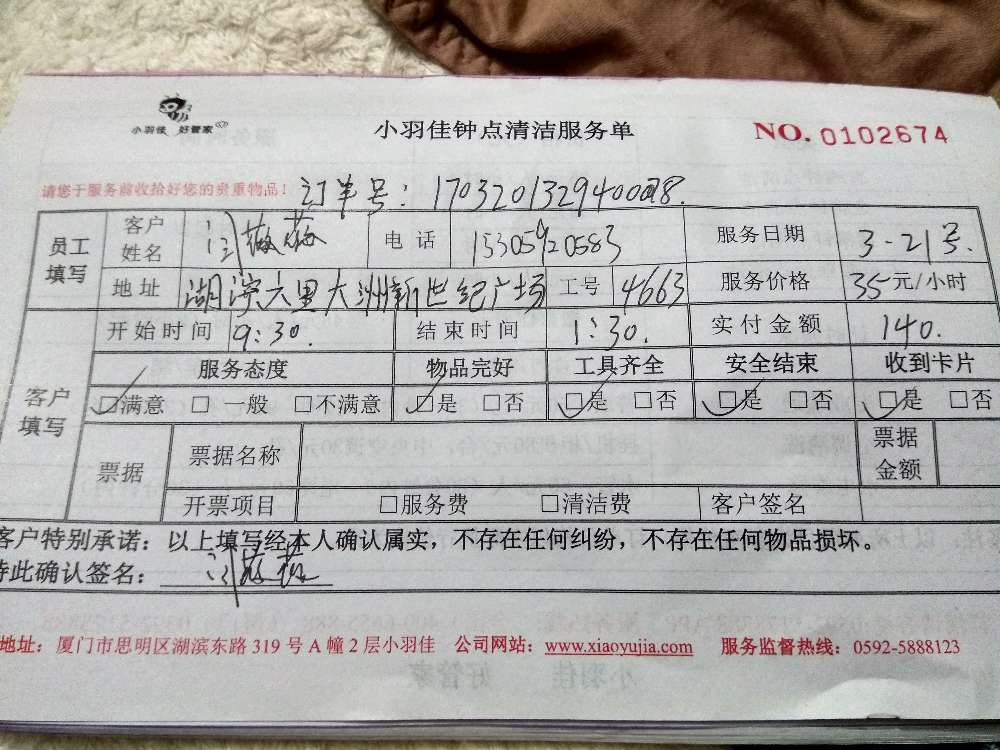 小羽佳 好管家
小羽佳钟点清洁服务单
NO. 0102674
请您于服务前收拾好您的贵重物品！ 订单号：
员工填写 客户姓名 电话 15305920583 服务日期 3-21号
地址 湖滨六里大洲新世纪广场 工号 4663 服务价格 35元/小时
客户填写 开始时间 9:30. 结束时间 1:30. 实付金额 140.
服务态度 物品完好 工具齐全 安全结束 收到卡片
☑满意 □一般 □不满意 ☑是 □否 ☑是 □否 ☑是 □否 ☑是 □否
票据 票据名称 票据金额
开票项目 □服务费 □清洁费 客户签名
客户特别承诺：以上填写经本人确认属实，不存在任何纠纷，不存在任何物品损坏。
特此确认签名：
地址：厦门市思明区湖滨东路319号A幢2层小羽佳 公司网站：www.xiaoyujia.com 服务监督热线：0592-5888123